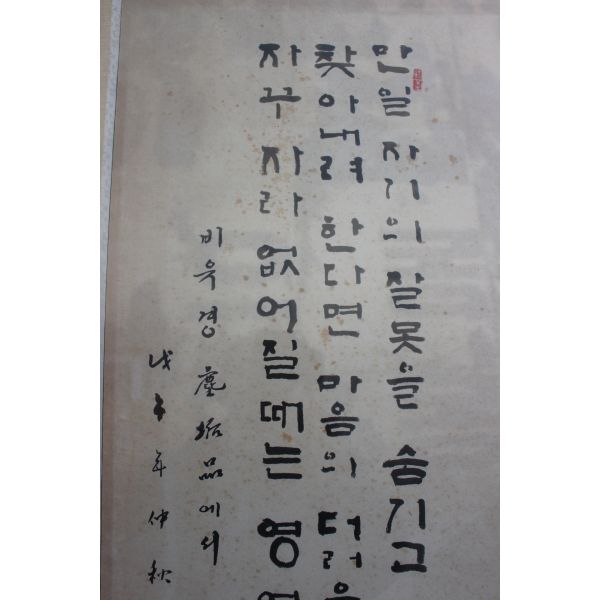 만일 자기의 잘못을 숨기고
찾아내려 한다면 마음의
자꾸 자라 없어질 때는 영
비유경 塵垢品에서
戊午年仲秋